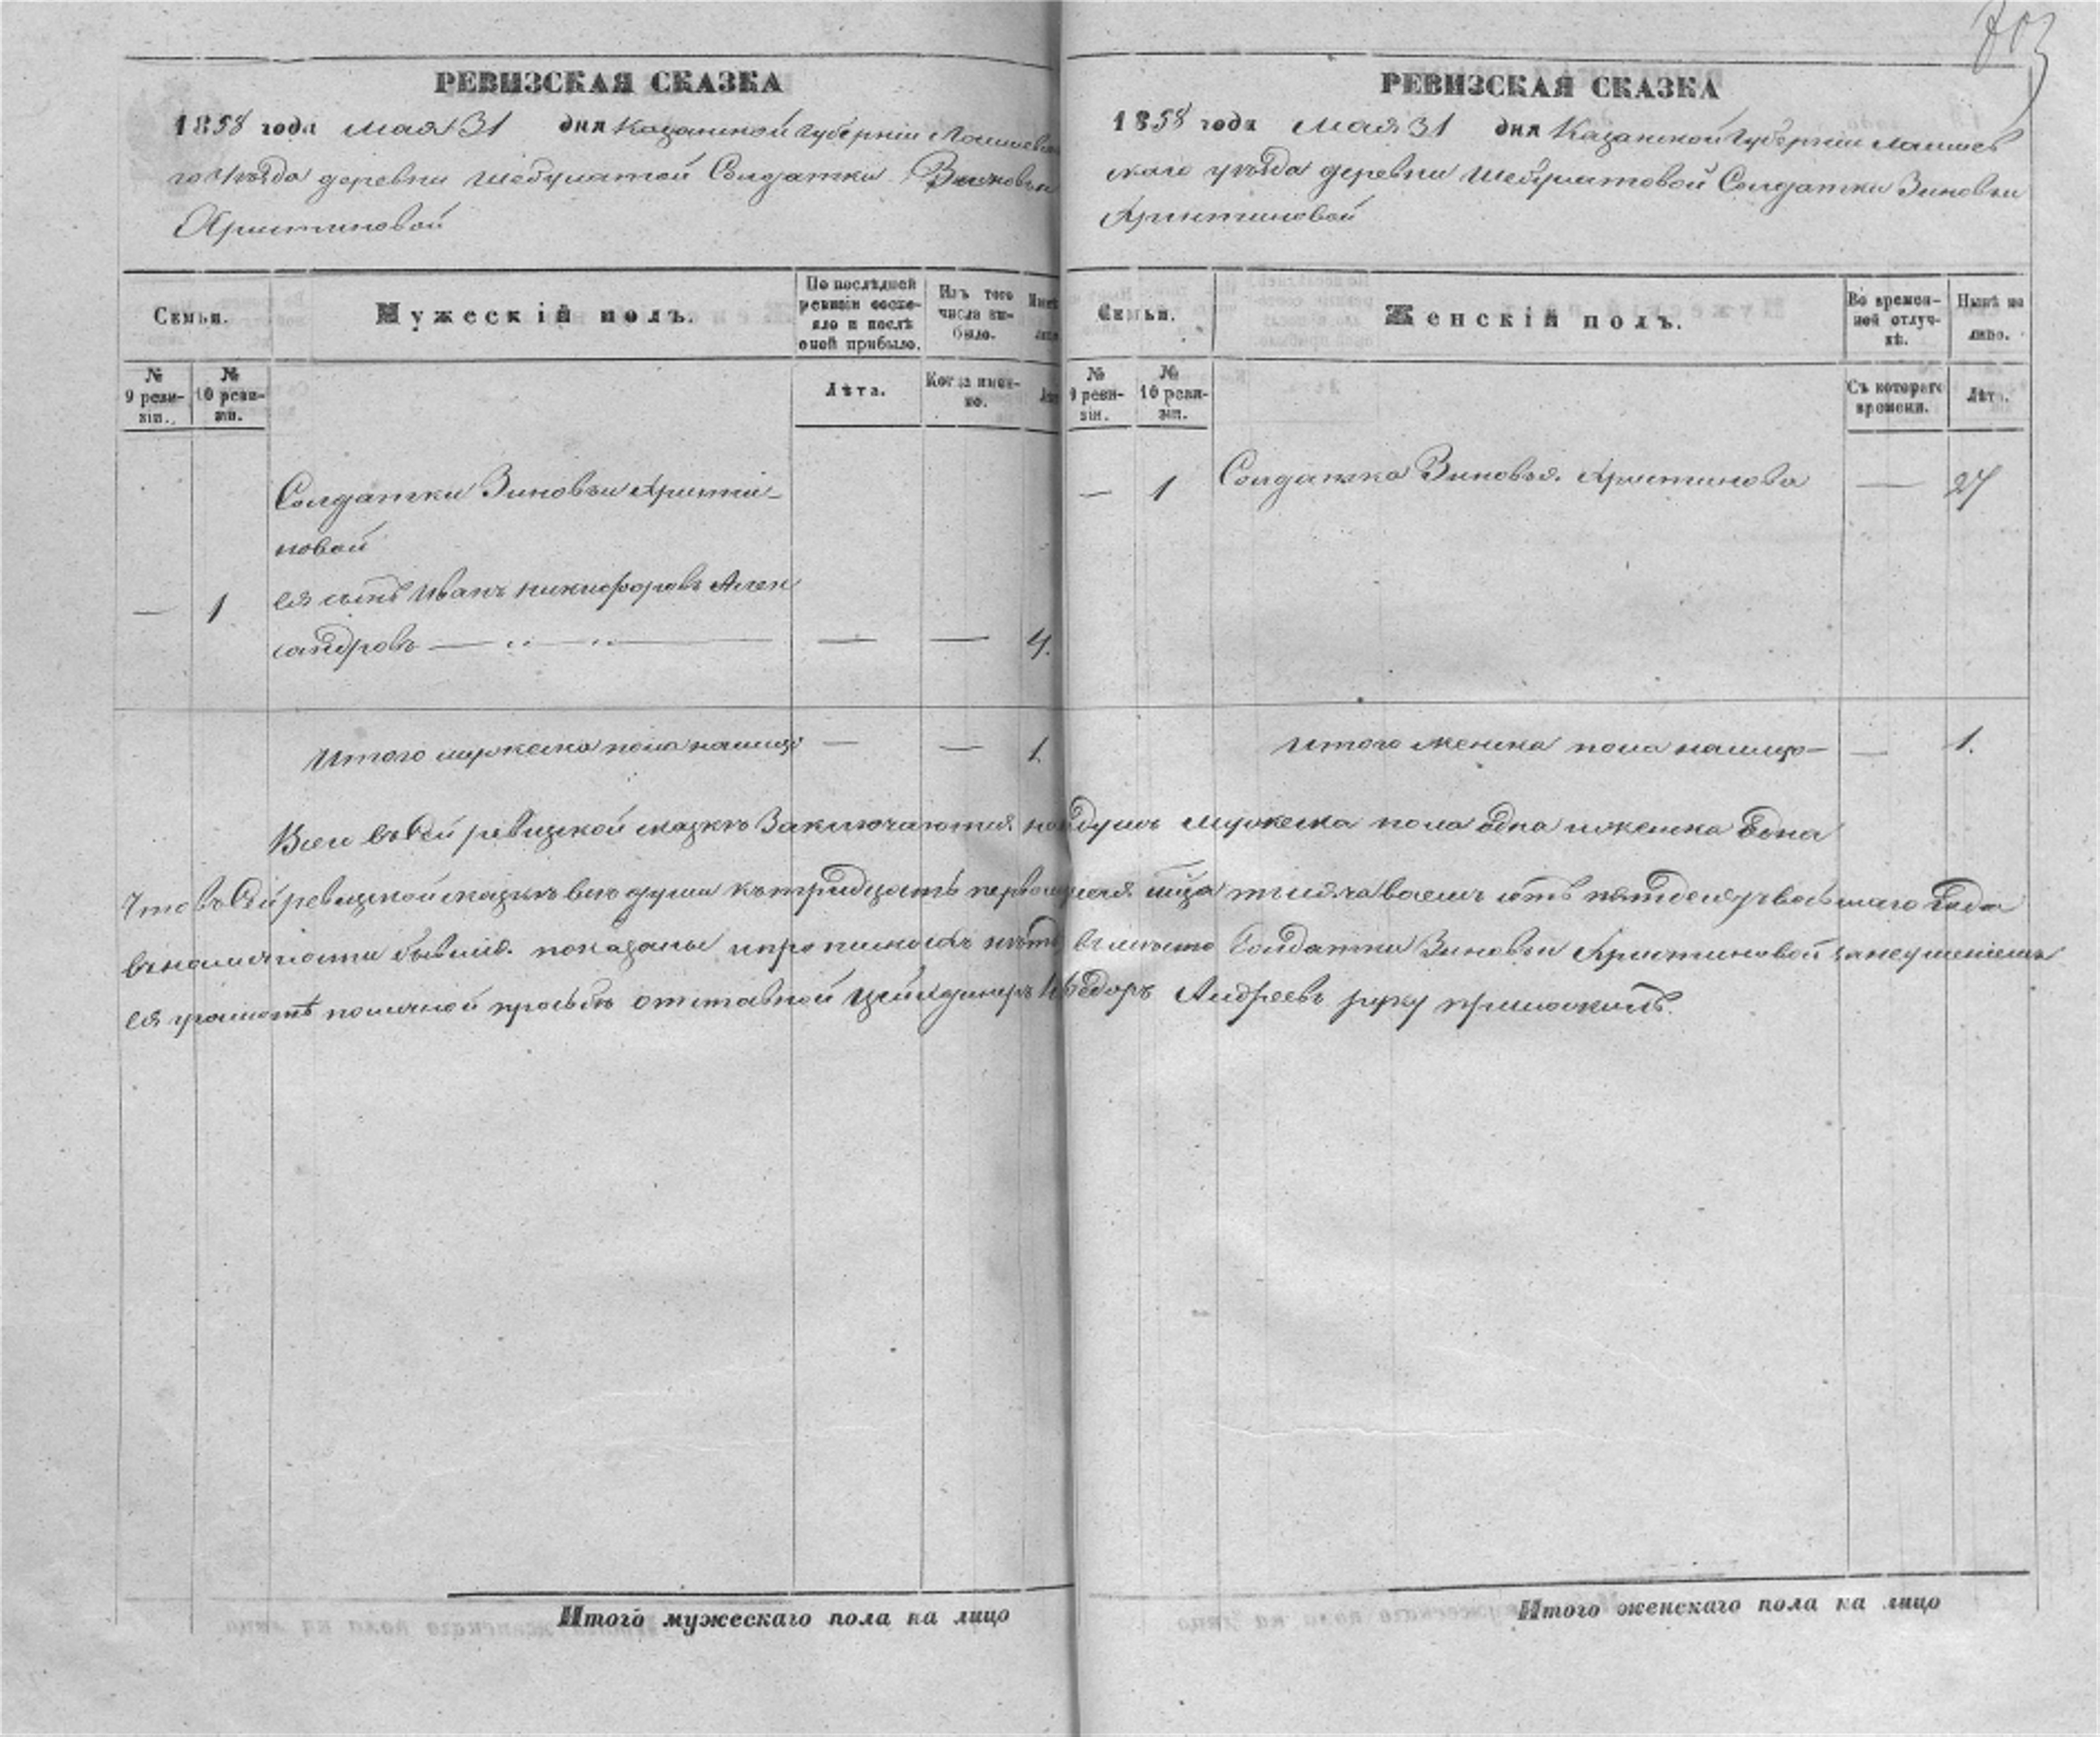 703
РЕВИЗСКАЯ СКАЗКА
1858 года мая 31 дня Казанской Губерніи Лаишевска
го Уѣзда деревни Солдатки Зиновьи
Христиновой
Семьи.
Мужескій полъ.
По послѣдней ревизіи состояло и послѣ оной прибыло.
Изъ того числа выбыло.
№ 9 ревизіи.
№ 10 ревизіи.
Лѣта.
Когда именно.
Солдатки Зиновьи Христи-
новой
— 1 ея сынъ Иванъ Никифоровъ Алек
сандровъ — — — 4.
Итого мужеска пола налицо — — 1
Итого мужескаго пола на лицо
РЕВИЗСКАЯ СКАЗКА
1858 года мая 31 дня Казанской Губерніи Лаишев
скаго уѣзда деревни Солдатки Зиновьи
Христиновой
Семьи.
Женскій полъ.
Во временной отлучкѣ.
Нынѣ на лицо.
№ 9 ревизіи.
№ 10 ревизіи.
Съ котораго времени.
Лѣта.
— 1 Солдатка Зиновья Христинова — 27
Итого женска пола налицо — — 1.
Всего въ сей ревизской сказкѣ заключается душъ мужеска пола одна и женска одна
Что въ сей ревизской сказкѣ всѣ души къ тридцать первому мая тысяча восемь сотъ пятдесятъ восьмаго года
въ наличности бывшія показаны и прописныхъ нѣтъ, въ мѣсто Солдатки Зиновьи Христиновой за неумѣніемъ
ея грамотѣ по личной просьбѣ отставной Андреевъ руку приложилъ.
Итого женскаго пола на лицо